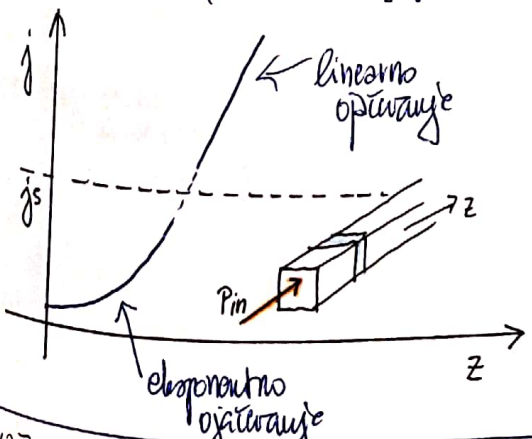 j
linearno
ojačevanje
js
z
Pin
z
eksponentno
ojačevanje